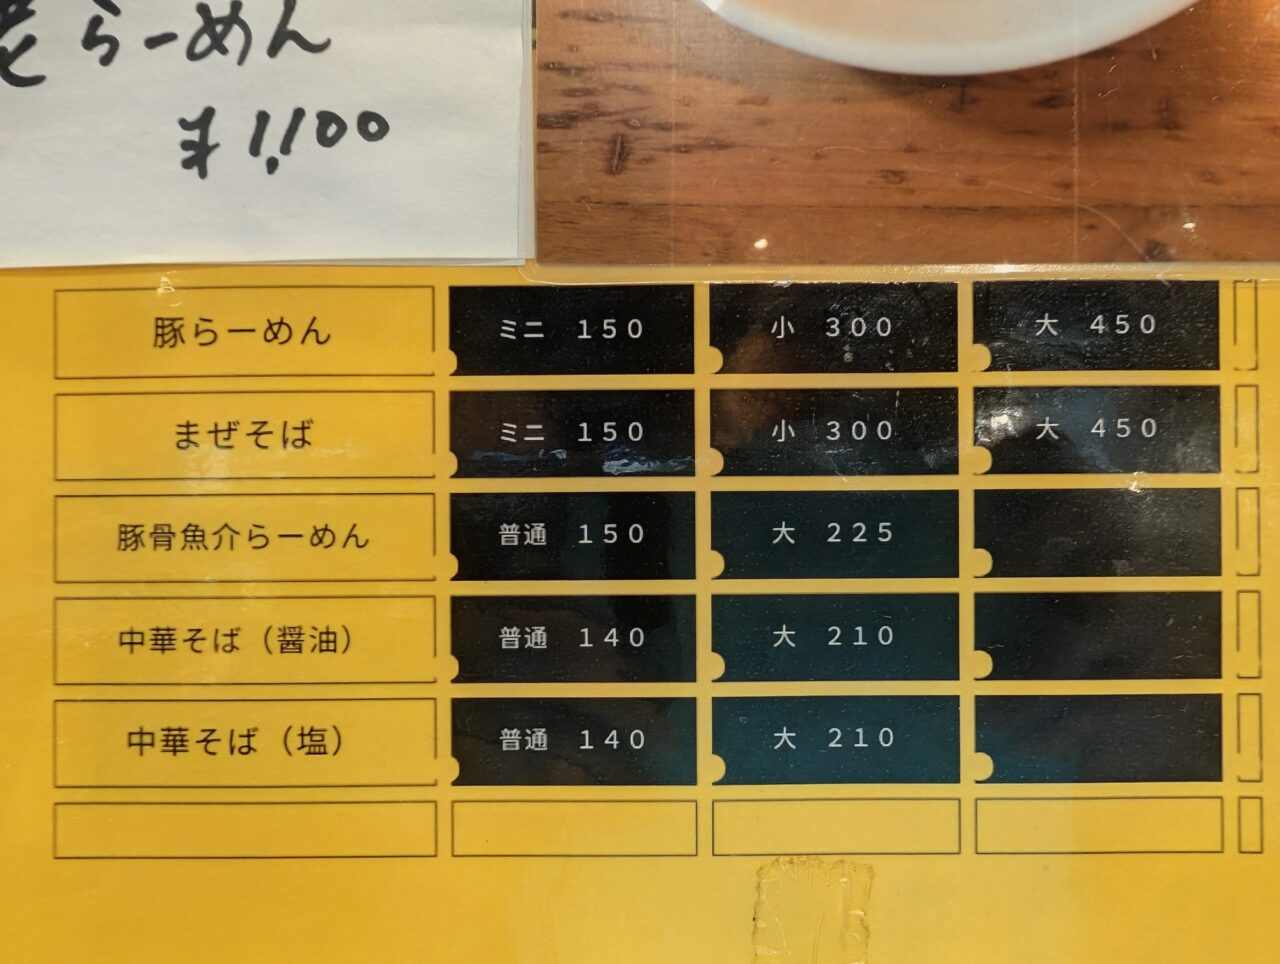 らーめん
¥1,100
豚らーめん ミニ 150 小 300 大 450
まぜそば ミニ 150 小 300 大 450
豚骨魚介らーめん 普通 150 大 225
中華そば（醤油） 普通 140 大 210
中華そば（塩） 普通 140 大 210